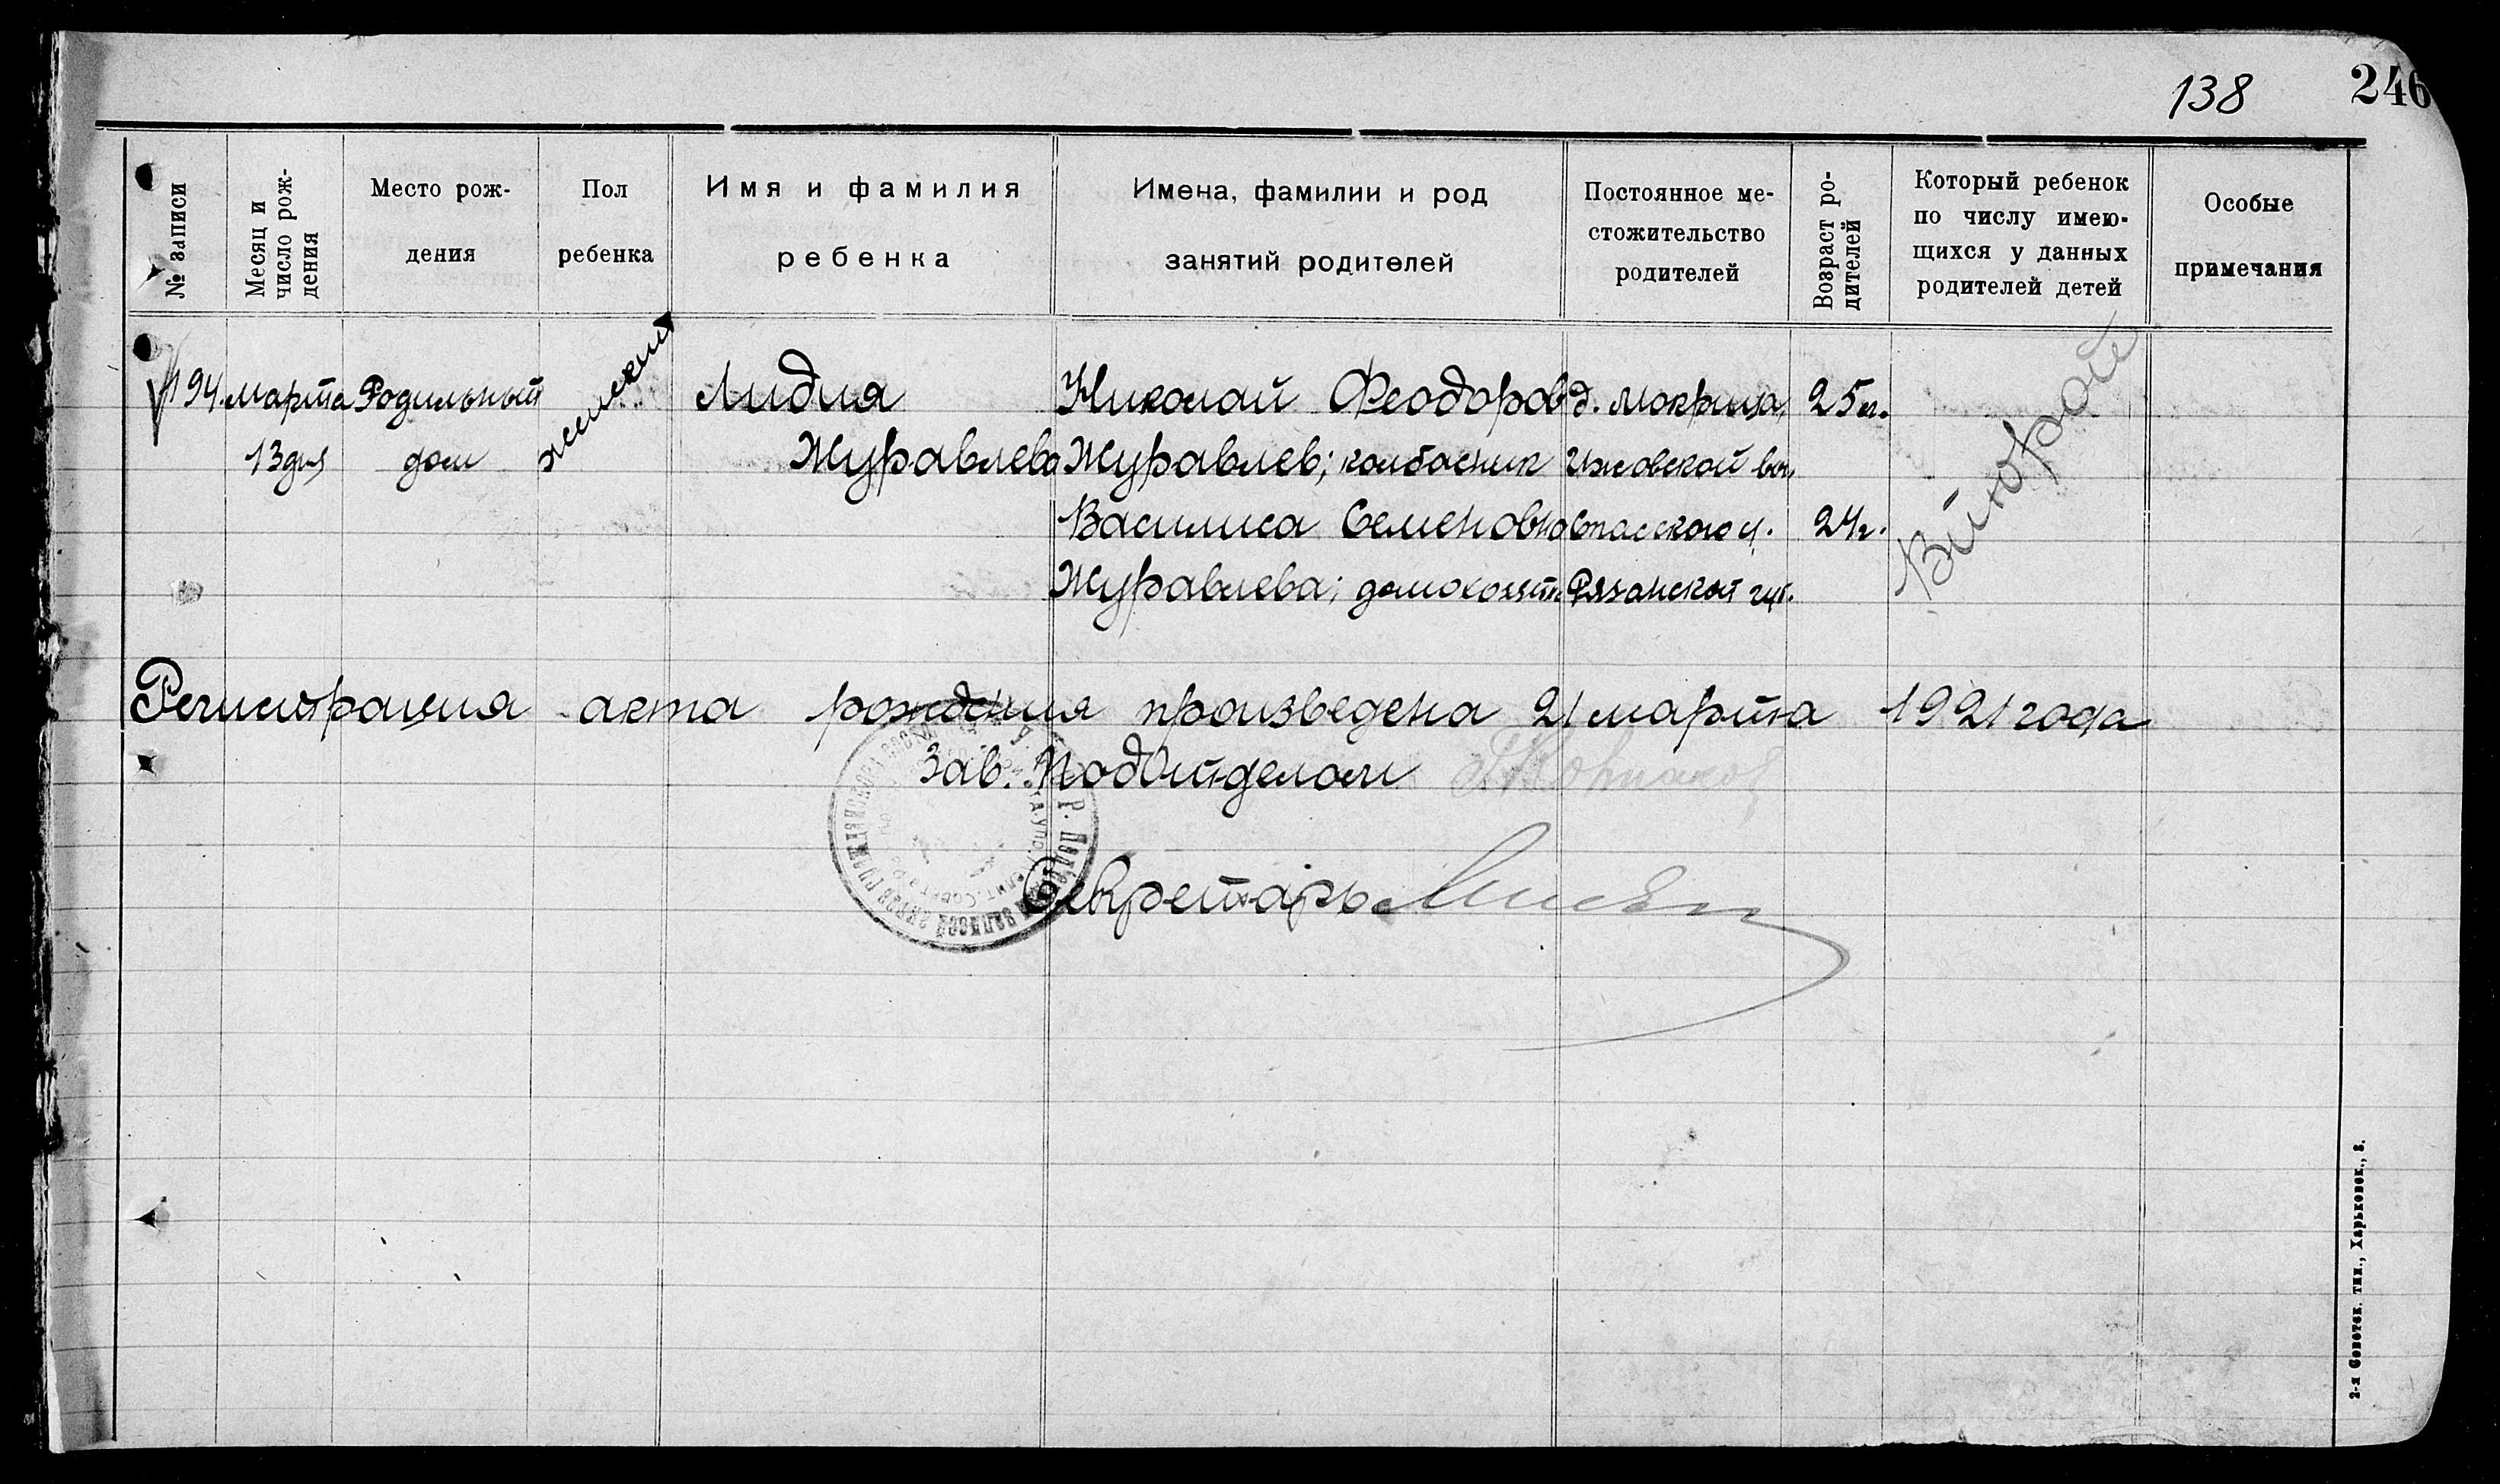 138
246
№ записи
Месяц и
число рож-
дения
Место рож-
дения
Пол
ребенка
Имя и фамилия
ребенка
Имена, фамилии и род
занятий родителей
Постоянное ме-
стожительство
родителей
Возраст ро-
дителей
Который ребенок
по числу имею-
щихся у данных
родителей детей
Особые
примечания
194.
марта
13 дня
Родильный
дом
женский
Лидия
Журавлева
Николай Феодоров
Журавлев; колбасник
Василиса Семеновна
Журавлева;
д. Мокрица,
Ижевской вол.
Спасского у.
Рязанской губ.
25 л.
24 г.
Второй
Регистрация акта рождения произведена 21 марта 1921 года
Зав. Подотделом
Секретарь
2-я Советск. тип., Харьковск., 3.